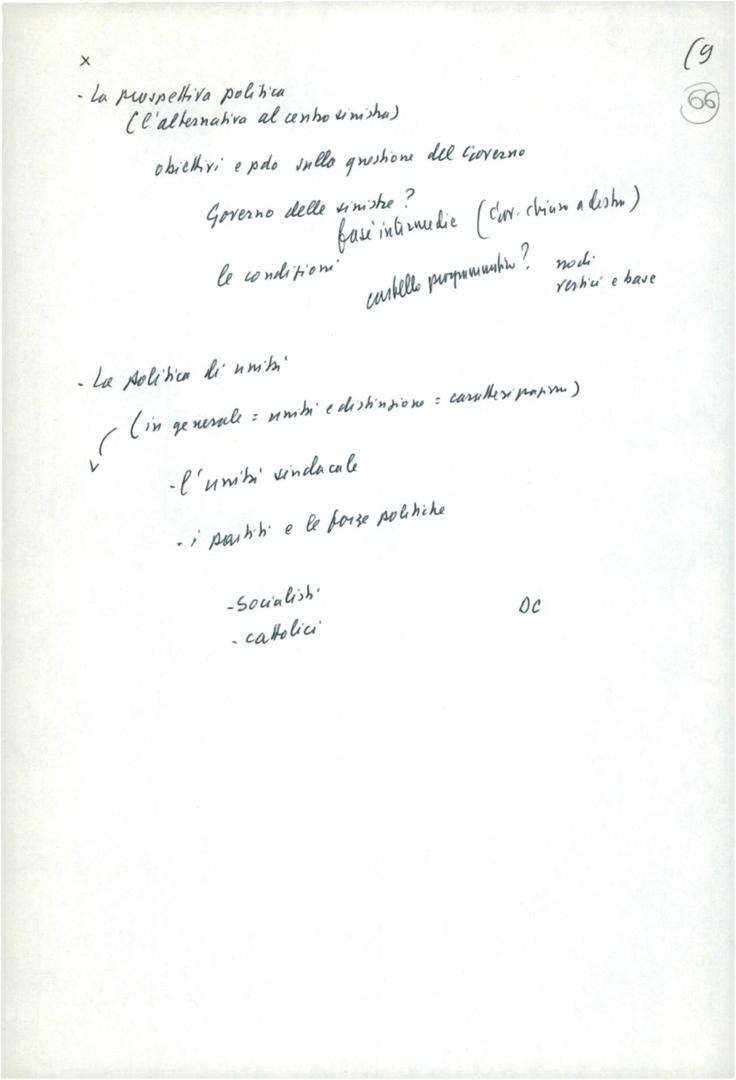 x
(9
66
- La prospettiva politica
(l'alternativa al centrosinistra)
obiettivi e pdo sulla questione del Governo
Governo delle sinistre?
fasi intermedie (Gov. chiuso a destra)
le condizioni
cartello programmatico? nodi
vertici e base
- La politica di unità
(in generale = unità e distinzione =
- l'unità sindacale
- i partiti e le forze politiche
- Socialisti
DC
- cattolici